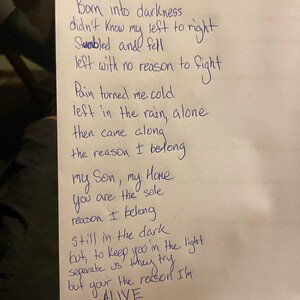 Born into darkness
didn't know my left to right
Stumbled and fell
left with no reason to fight
Pain turned me cold
left in the rain, alone
then came along
the reason I belong
my Son, my Home
you are the sole
reason I belong
still in the dark
but, to keep you in the light
seperate us they try
but your the reason I'm
ALIVE